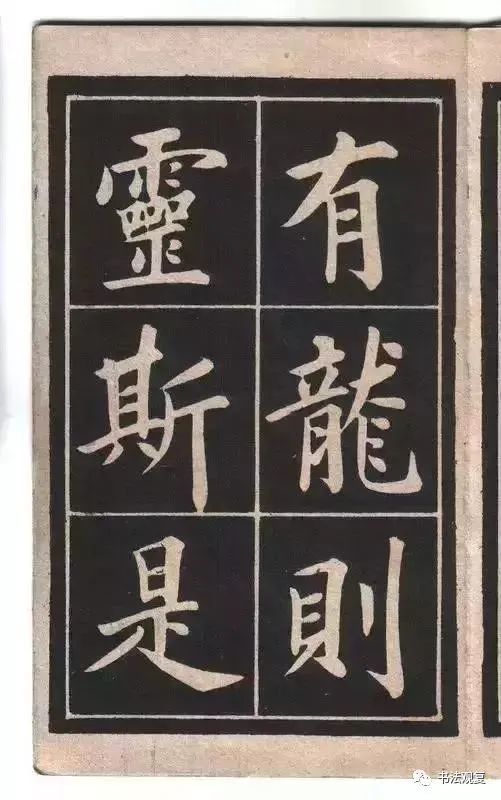 有龍則
靈斯是
书法观复